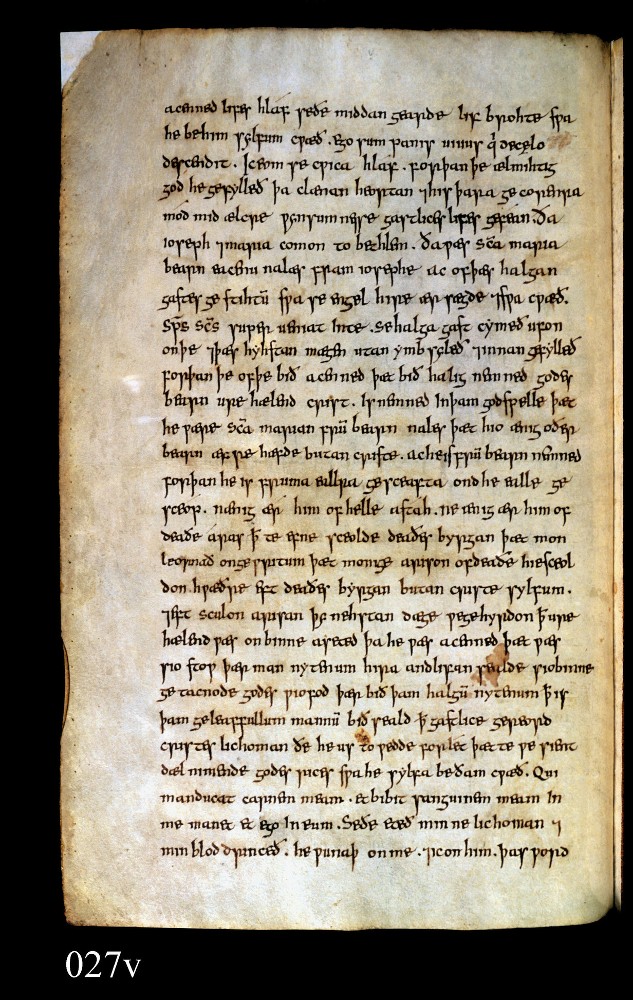 acenned lifes hlaf seðe middan gearde lif brohte swa
he be him sylfum cwæð. Ego sum panis uiuus q̄ de cęlo
descendit. Ic eom se cwica hlaf. forþan þe ælmihtig
god he gefylleð þa clænan heortan ⁊ his þara gecorenra
mód mid ælcre wynsumnesse gastlices lifes gefean. Ða
ioseph ⁊ maria comon to bethlem. ða wæs sc̄a maria
bearn eacenu nales fram iosephe ac of þæs halgan
gastes gestihtū swa se engel hire ær sægde ⁊ swa cwæð.
Sp̄s sc̄s super ueniat in te. Se halga gast cymeð ufon
on þe ⁊ þæs hyhstan mægen utan ymb seleð ⁊ innan gefylleð
forþan þe of þe bið acenned þæt bið halig nemned godes
bearn ure hælend crist. Is nemned In þam godspelle þæt
he wære sc̄a marian frū bearn nales þæt hio ænig oðer
bearn æfre hæfde butan criste. ac he is frū bearn nemned
forþan he is fruma eallra gesceafta ond he ealle ge
sceop. nænig ær him of helle astah. ne ænig ær him of
deaðe áras þ̄ te efne sceolde deaðes byrgan þæt mon
leornað on gewritum þæt monige arison of deaðe hie sceol
don hwæðre eft deaðes byrgan butan criste sylfum.
⁊ eft sculon arisan þȳ nehstan dæge we gehyrdon þ̄ ure
hælend wæs on binne aseted þa he wæs acenned þæt wæs
sio stow þær man nytenum hira andlifan sealde sio binne
getacnode godes wiofod þær bið þam halgū nytenum þ̄ is
þam geleaffullum mannū bið seald þ̄ gastlice gereord
cristes lichoman ðe he us to wedde forlet þætte we sient
dæl nimende godes rices swa he sylfa be ðam cwæð. Qui
manducat carnem meam. et bibit sanguinem meum In
me manet et ego In eum. Se ðe eteð minne lichoman ⁊
min blod drinceð. he wunaþ on me. ⁊ ic on him. þas word
027v